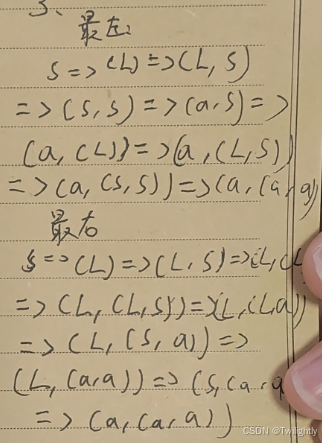 3、
最左:
S=>(L)=>(L,S)
=>(S,S)=>(a,S)=>
(a,(L))=>(a,(L,S))
=>(a,(S,S))=>(a,(a,a)
最右
S=>(L)=>(L,S)=>(L,(L
=>(L,(L,S))=>(L,(L,a))
=>(L,(S,a))=>
(L,(a,a))=>(S,(a,a
=>(a,(a,a))
CSDN @Twilightly